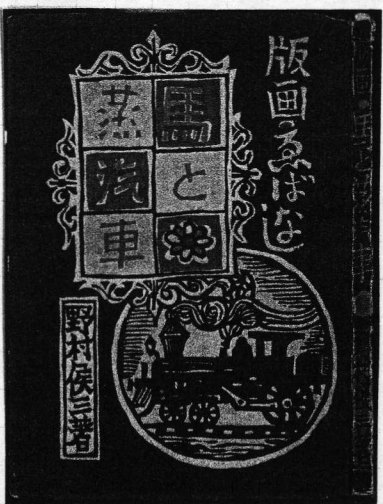 版画ゑばなし
馬と
蒸汽車
野村侯三著